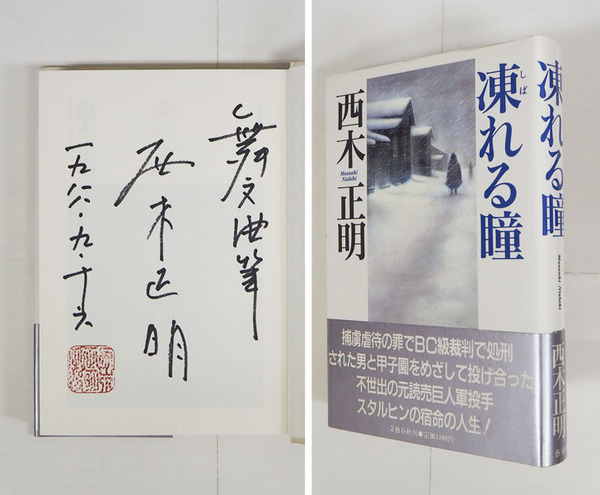 舞文曲筆
西木正明
一九八八・九・十六
凍れる瞳
しば
西木正明
Masaaki
Nishiki
捕虜虐待の罪でBC級裁判で処刑
された男と甲子園をめざして投げ合った
不世出の元読売巨人軍投手
スタルヒンの宿命の人生!
文藝春秋刊●定価1400円
凍れる瞳
Masaaki Nishiki
西木正明